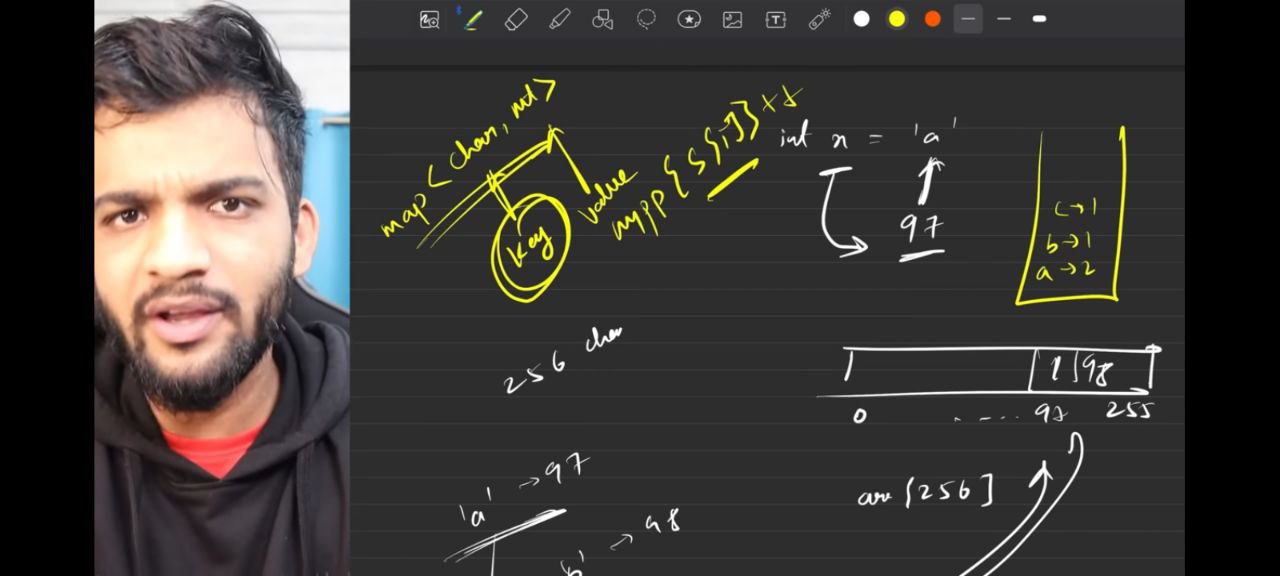 T
map < char, int >
Key
value
mpp [s[i]]++
int x = 'a'
97
c → 1
b → 1
a → 2
256 char
1 98
0 ..... 97 255
arr [256]
'a' → 97
'b' → 98